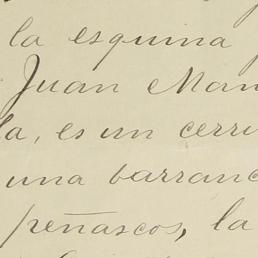 la esquina
Juan Man
la, es un cerri
una barranc
peñascos, la